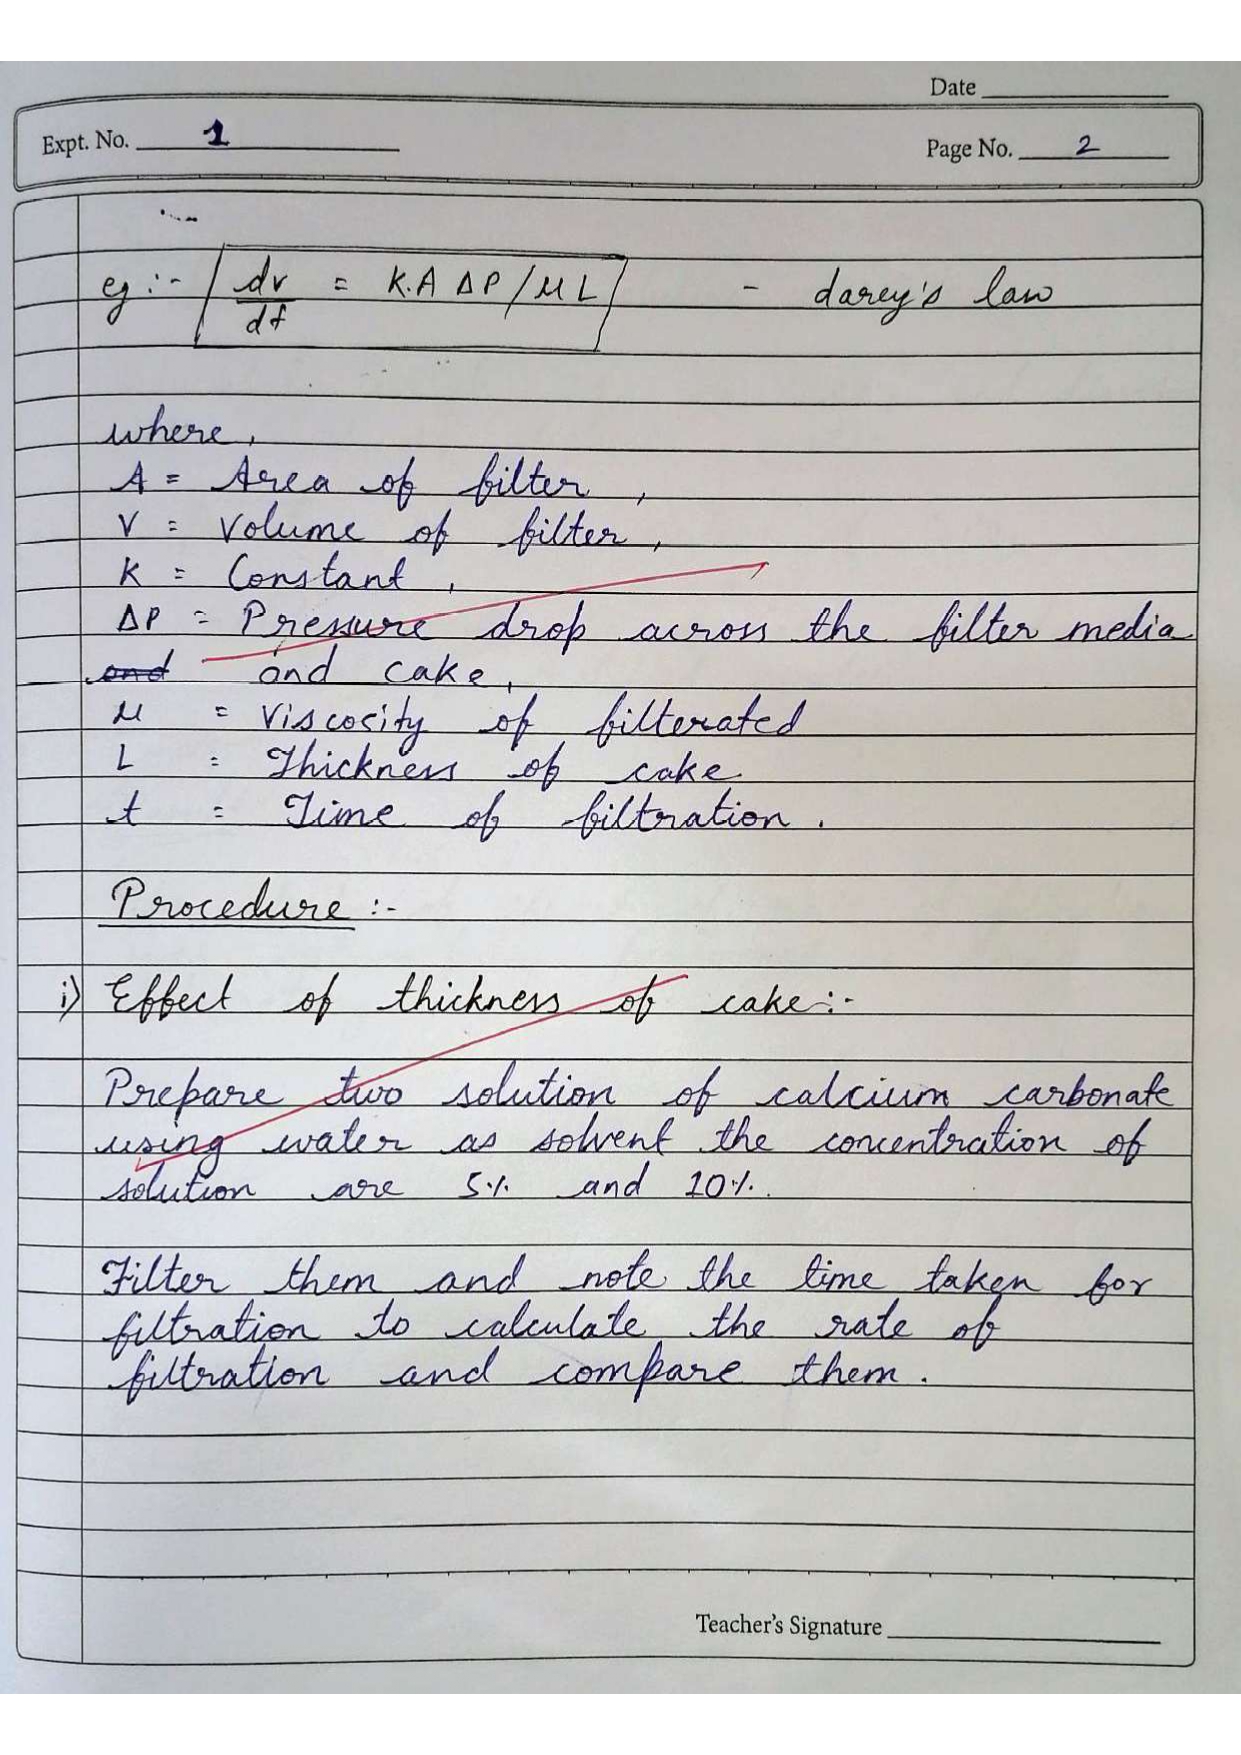 Date
Expt. No. 1
Page No. 2
eg :- dv/df = K.A ΔP/μL - darcy's law
where,
A = Area of filter,
V = Volume of filter,
K = Constant,
ΔP = Pressure drop across the filter media
and and cake,
μ = Viscosity of filterated
L = Thickness of cake
t = Time of filtration.
Procedure :-
i) Effect of thickness of cake:-
Prepare two solution of calcium carbonate
using water as solvent the concentration of
solution are 5% and 10%.
Filter them and note the time taken for
filtration to calculate the rate of
filtration and compare them.
Teacher's Signature